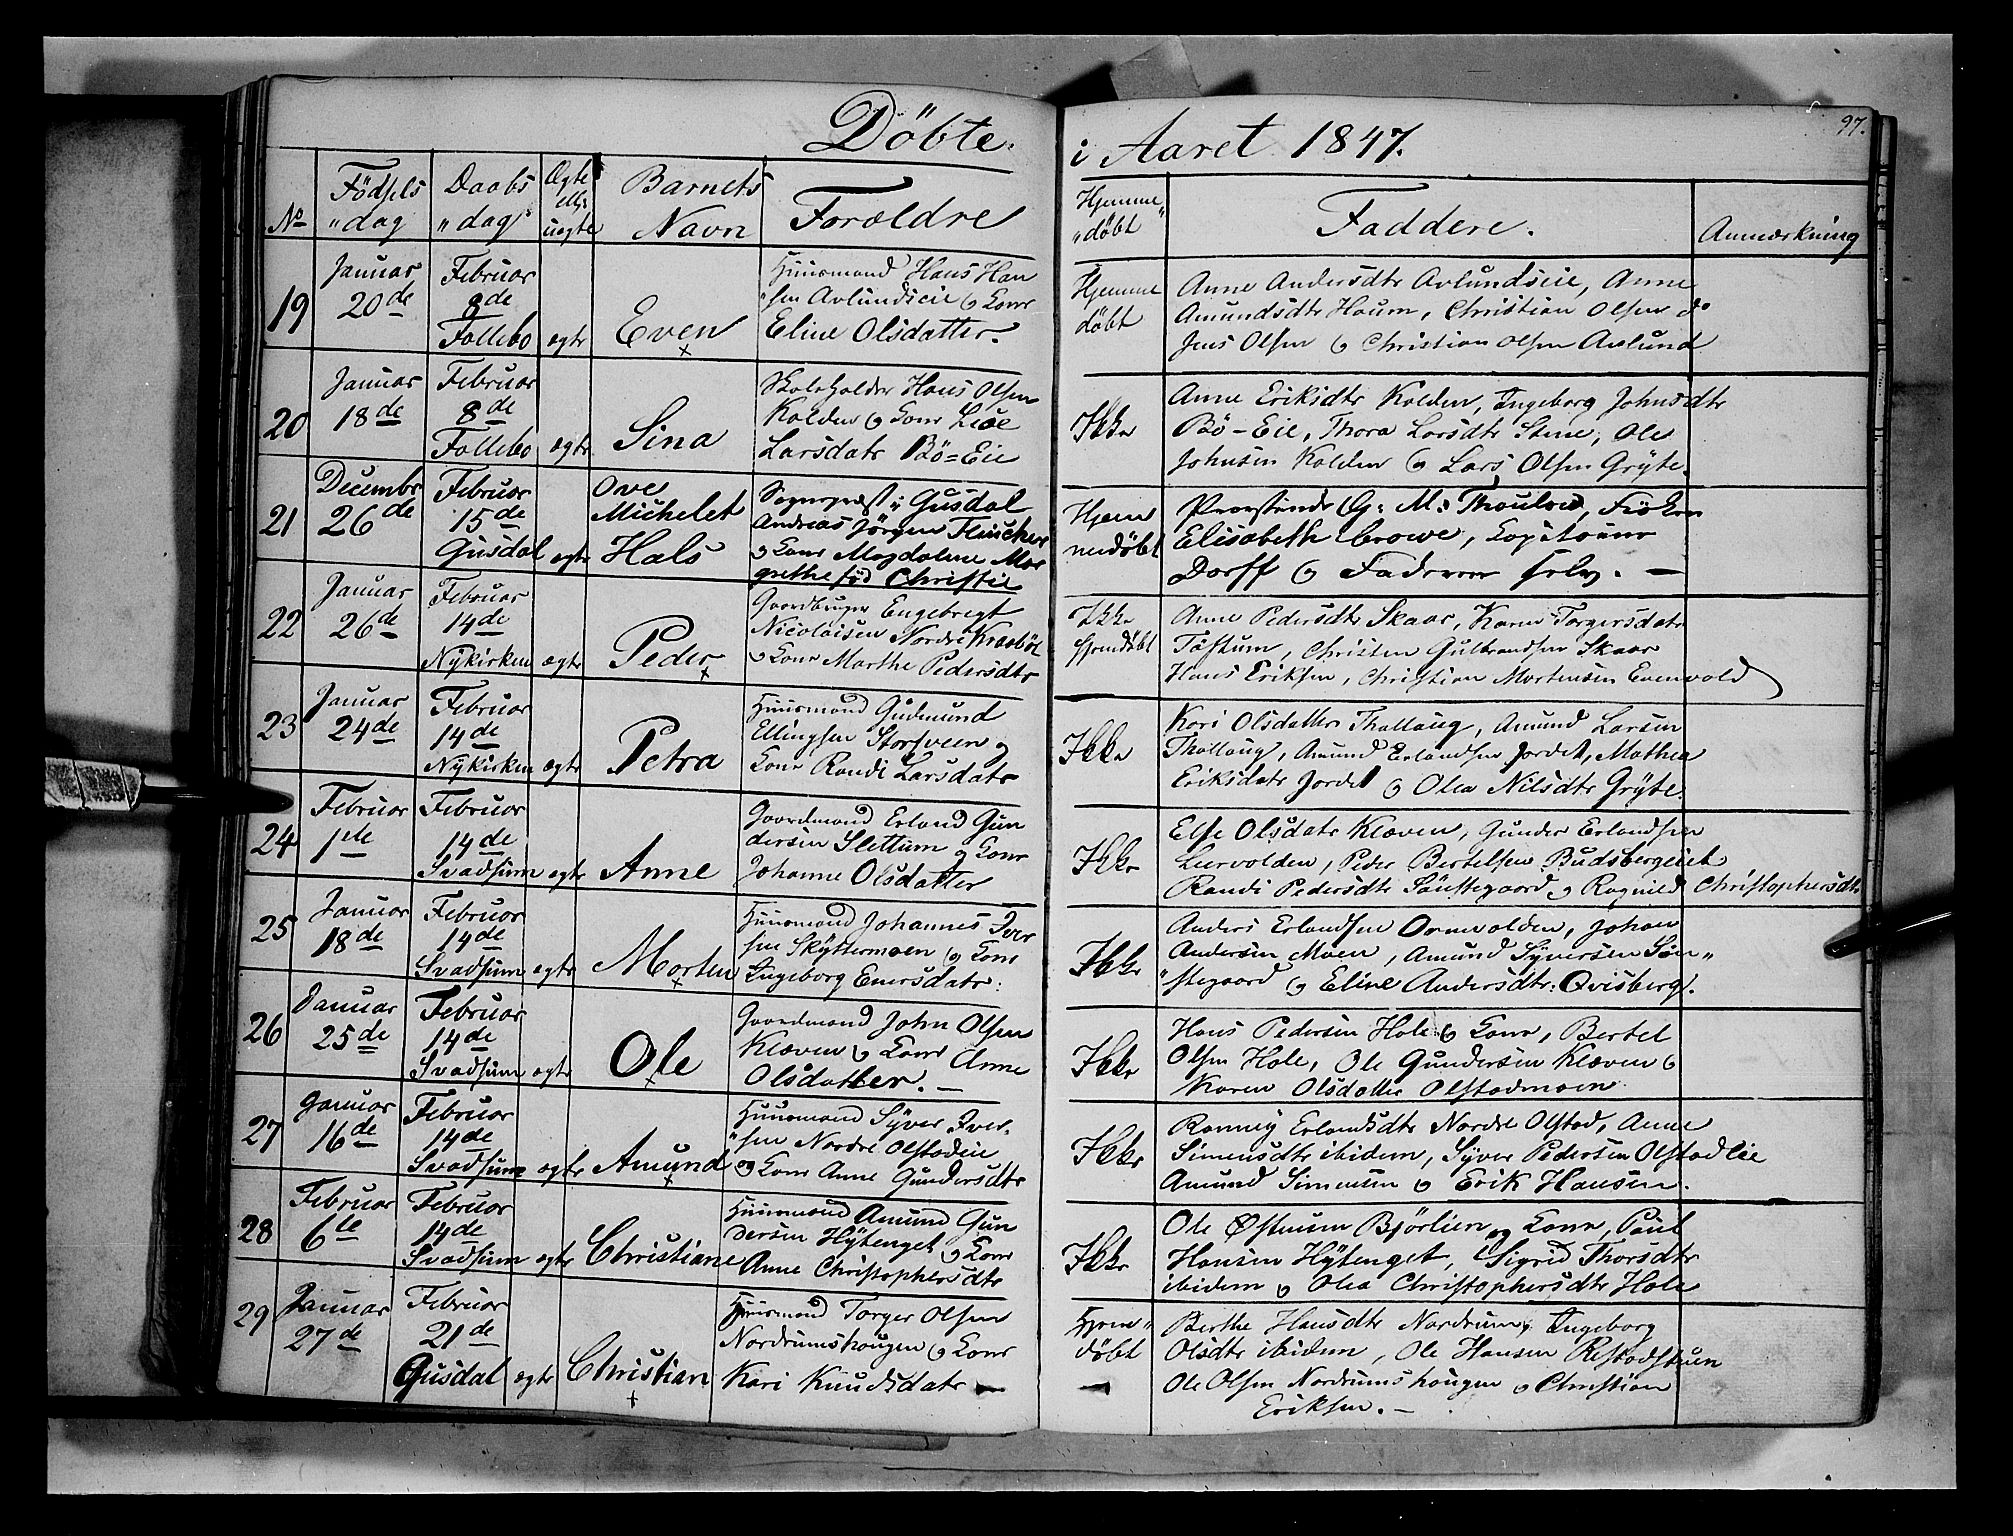 Döbte.
i Aaret 1847.
97.
No
Födsels
"dag
Daabs
"dag
Ægte
ell:
uægte
Barnets
Navn
Forældre
Hjemme"
"döbt
Faddere.
Anmærkning
19
Januar
20de
Februar
8de
Follebo
ægte
Even
Huusmand Hans Han
"sen Avlundseie og Kone
Eline Olsdatter.
Hjemme
döbt
Anne Andersdtr Avlundseie, Anne
Amundsdtr Houm, Christian Olsen do
Jens Olsen og Christian Olsen Avlund
20
Januar
18de
Februar
8de
Follebo
ægte
Sina
Skoleholder Hans Olsen
Kolden og Kone Lise
Larsdatr Bö=Eie
Ikke
Anne Eriksdtr Kolden, Ingeborg Johnsdtr
Bö-Eie, Thora Larsdtr Stene, Ole
Johnsen Kolden og Lars Olsen Gryte.
21
Decembr
26de
Februar
15de
Gusdal
ægte
Ove
Michelet
Hals
Sognepræst i Gusdal
Andreas Jörgen Fleischer
og Kone Magdalene Mar
grethe föd Christie
Hjem
medöbt
Provstinde G: M: Thaulow, Fröken
Elisabeth Crowe, Capitaine
Dorff og Faderen selv. —
22
Januar
26de
Februar
14de
Nykirken
ægte
Peder
Gaardbruger Engebregt
Nicolaisen Nordre Kraaböl
og Kone Marthe Pedersdtr
Ikke
hjemdöbt
Anne Pedersdtr Skaar, Karen Torgersdatr
Toftum, Christen Gulbrandsen Skaar
Hans Eriksen, Christian Mortensen Evenvold
23
Januar
24de
Februar
14de
Nykirken
ægte
Petra
Huusmand Gudmund
Ellingsen Storsveen og
Kone Randi Larsdatr
Ikke
Kari Olsdatter Thallaug, Amund Larsen
Thallaug, Amund Erlandsen Jordet, Mathea
Eriksdatr Jordet og Olea Nilsdtr Gryte.
24
Februar
1ste
Februar
14de
Svadsum
ægte
Anne
Gaardmand Erland Gun
dersen Slettum og Kone
Johanne Olsdatter
Ikke
Else Olsdatr Klæven, Gunder Erlandsen
Leervolden, Peder Bertelsen Budsbergeiet
Randi Pedersdtr Sönstegaard og Ragnild Christophersdtr
25
Januar
18de
Februar
14de
Svadsum
ægte
Morten
Huusmand Johannes Iver
sen Skyttermoen og Kone
Ingeborg Enersdatr:
Ikke
Anders Erlandsen Ornevolden, Johan
Andersen Moen, Amund Syversen Sön„
"stegaard og Eline Andersdtr: Qvisberg.
26
Januar
25de
Februar
14de
Svadsum
ægte
Ole
Gaardmand John Olsen
Klæven og Kone Anne
Olsdatter. —
Ikke
Hans Pedersen Hole og Kone, Bertel
Olsen Hole, Ole Gundersen Klæven og
Karen Olsdatter Olstadmoen
27
Januar
16de
Februar
14de
Svadsum
ægte
Amund
Huusmand Syver Iver-
"sen Nordre Olstadeie
og Kone Anne Gundersdtr
Ikke
Ronnoy Erlandsdtr Nordre Olstad, Anne
Simensdtr ibidem, Syver Pedersen Olstadeie
Amund Simensen og Erik Hansen.
28
Februar
6te
Februar
14de
Svadsum
ægte
Christiane
Huusmand Amund Gun
dersen Hytenget og Kone
Anne Christophersdtr
Ikke
Ole Østensen Bjørlien og Kone, Paul
Hansen Hytenget, Sigrid Thorsdtr
ibidem og Olea Christophersdtr Hole
29
Januar
27de
Februar
21de
Gusdal
ægte
Christian
Huusmand Torger Olsen
Nordrumshougen og Kone
Kari Knudsdatr
Hjem„
döbt
Berthe Hansdtr Nordrum, Ingeborg
Olsdtr ibidem, Ole Hansen
Ole Olsen Nordrumshougen og Christian
Eriksen. —